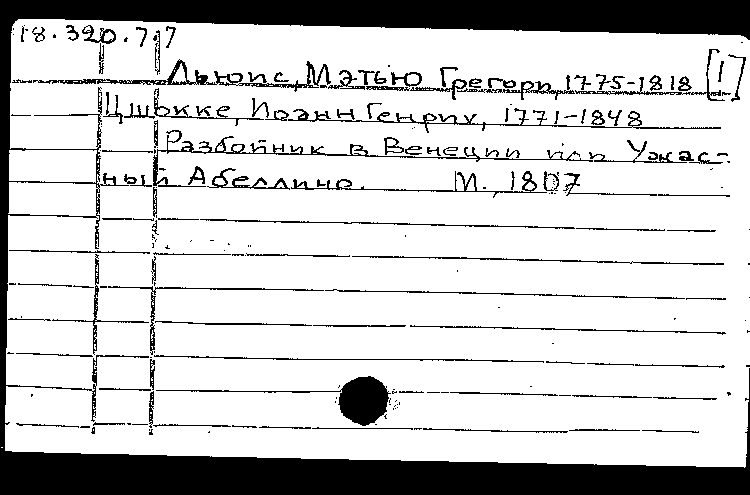 18.320.7.7
Льюис, Мэтью Грегори, 1775-1818 [1]
Цшокке, Иоанн Генрих, 1771-1848
Разбойник в Венеции или Ужас-
ный Абеллино. М., 1807